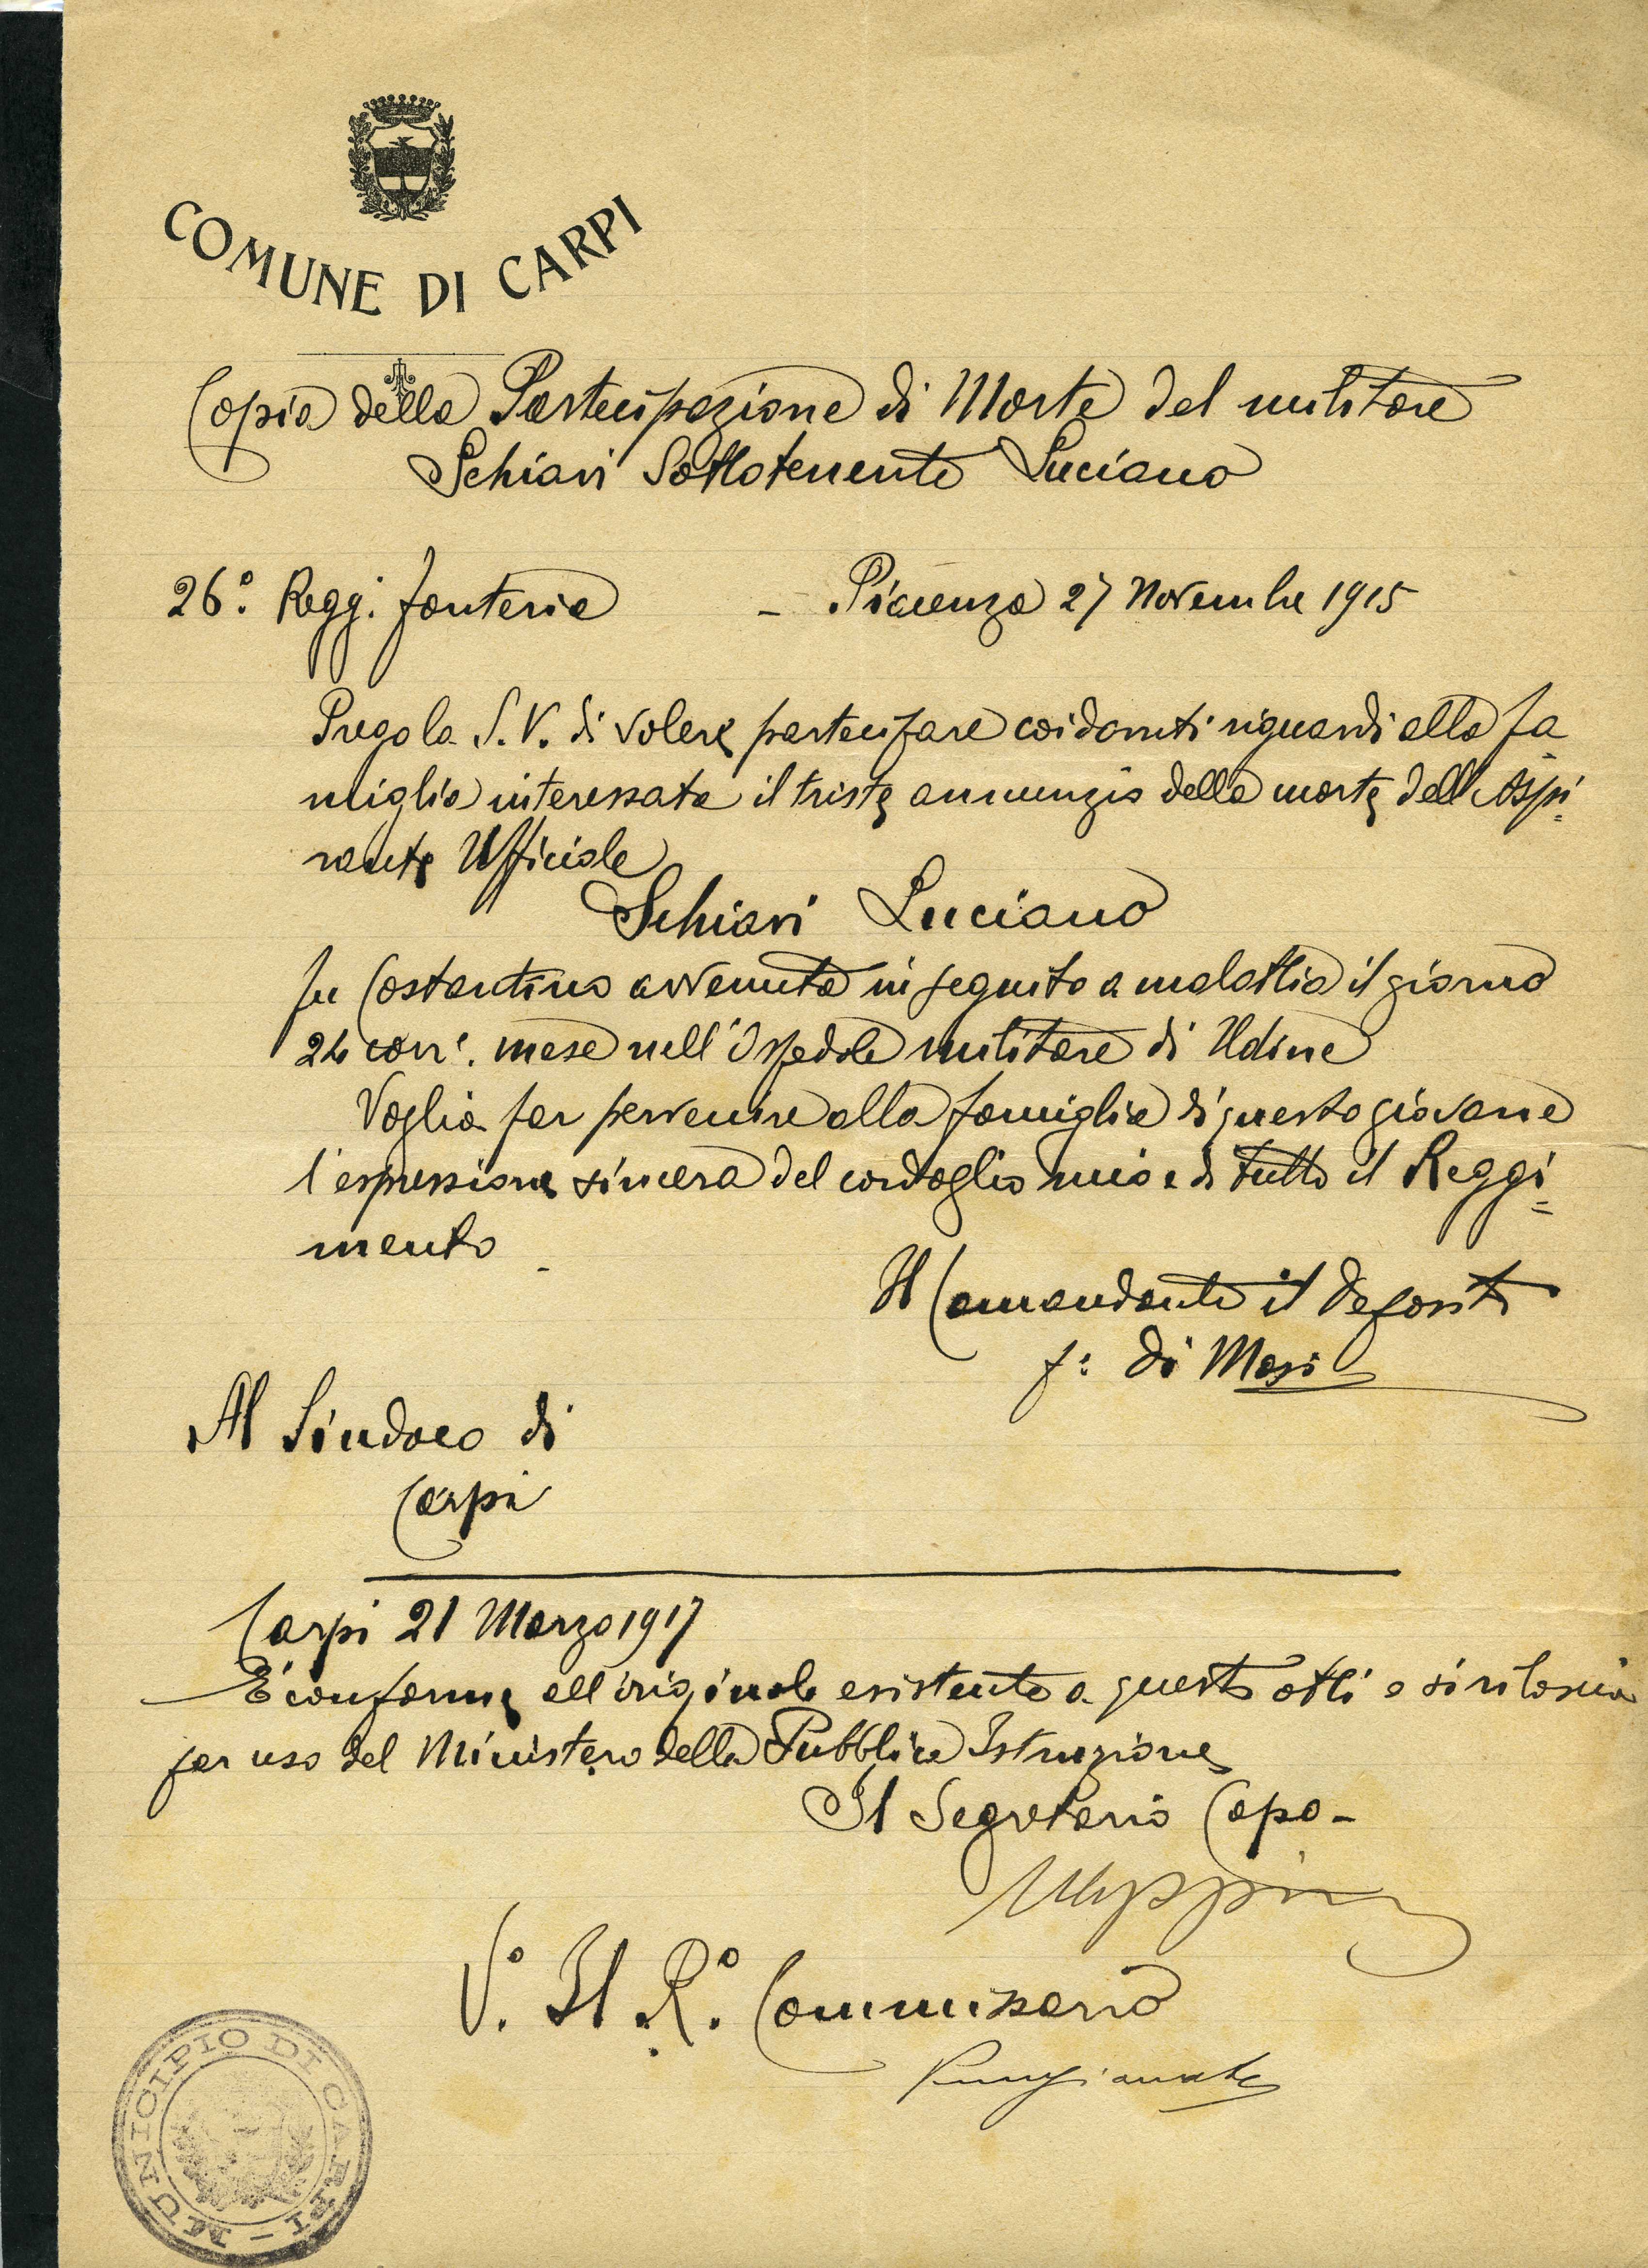 COMUNE DI CARPI
Copia della Partecipazione di Morte del militare
Schiavi Sottotenente Luciano
26º. Regg. fanteria – Piacenza 27 Novembre 1915
Prego la S. V. di volere partecipare coi dovuti riguardi alla fa
miglia interessata il triste annunzio della morte dell'Aspi=
rante Ufficiale
Schiavi Luciano
fu Costantino avvenuta in seguito a malattia il giorno
24 corr. mese nell'Ospedale militare di Udine
Voglia far pervenire alla famiglia di questo giovane
l'espressione sincera del cordoglio mio e di tutto il Reggi=
mento
Il Comandante il Deposito
f: Di Masi
Al Sindaco di
Carpi
Carpi 21 Marzo 1917
È conforme all'originale esistente a questi atti e si rilascia
per uso del Ministero della Pubblica Istruzione
Il Segretario Capo –
Vº. Il Rº. Commissario
MUNICIPIO DI CARPI –